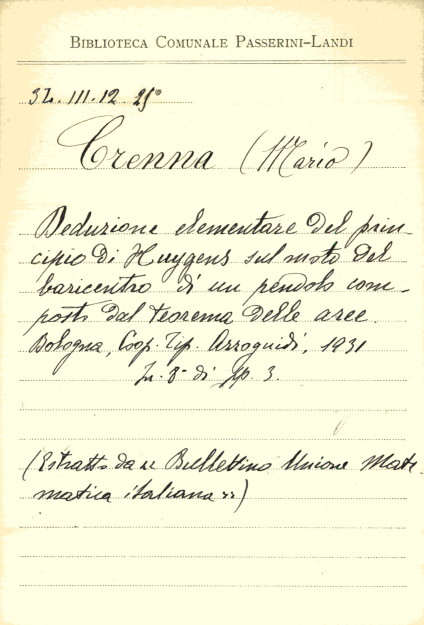 BIBLIOTECA COMUNALE PASSERINI-LANDI
3L.III.12.25°
Crenna (Mario)
Deduzione elementare del prin-
cipio di Huygens sul moto del
baricentro di un pendolo com-
posto dal teorema delle aree.
Bologna, Coop. Tip. Azzoguidi, 1931
In-8° di pp. 3.
(Estratto da « Bullettino Unione Mate
matica italiana »)